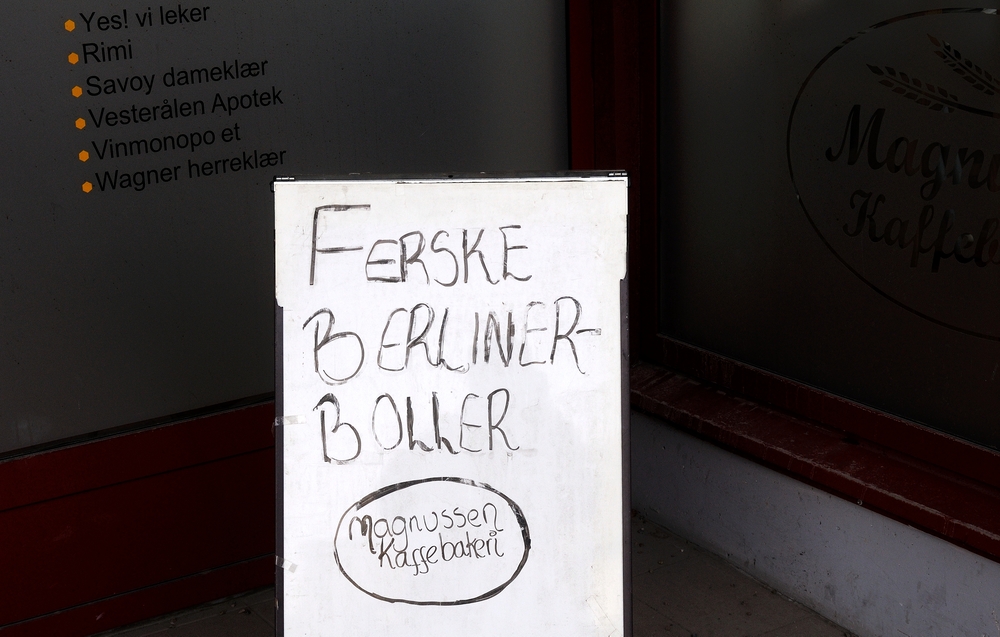 Yes! vi leker
Rimi
Savoy dameklær
Vesterålen Apotek
Vinmonopo et
Wagner herreklær
FERSKE
BERLINER-
BOLLER
Magnussen
Kaffebakeri
Magnu
Kaffeb